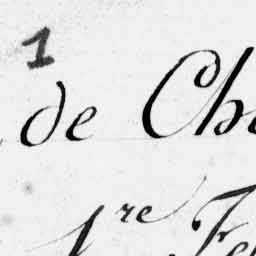 1
de Ch
1re Fe